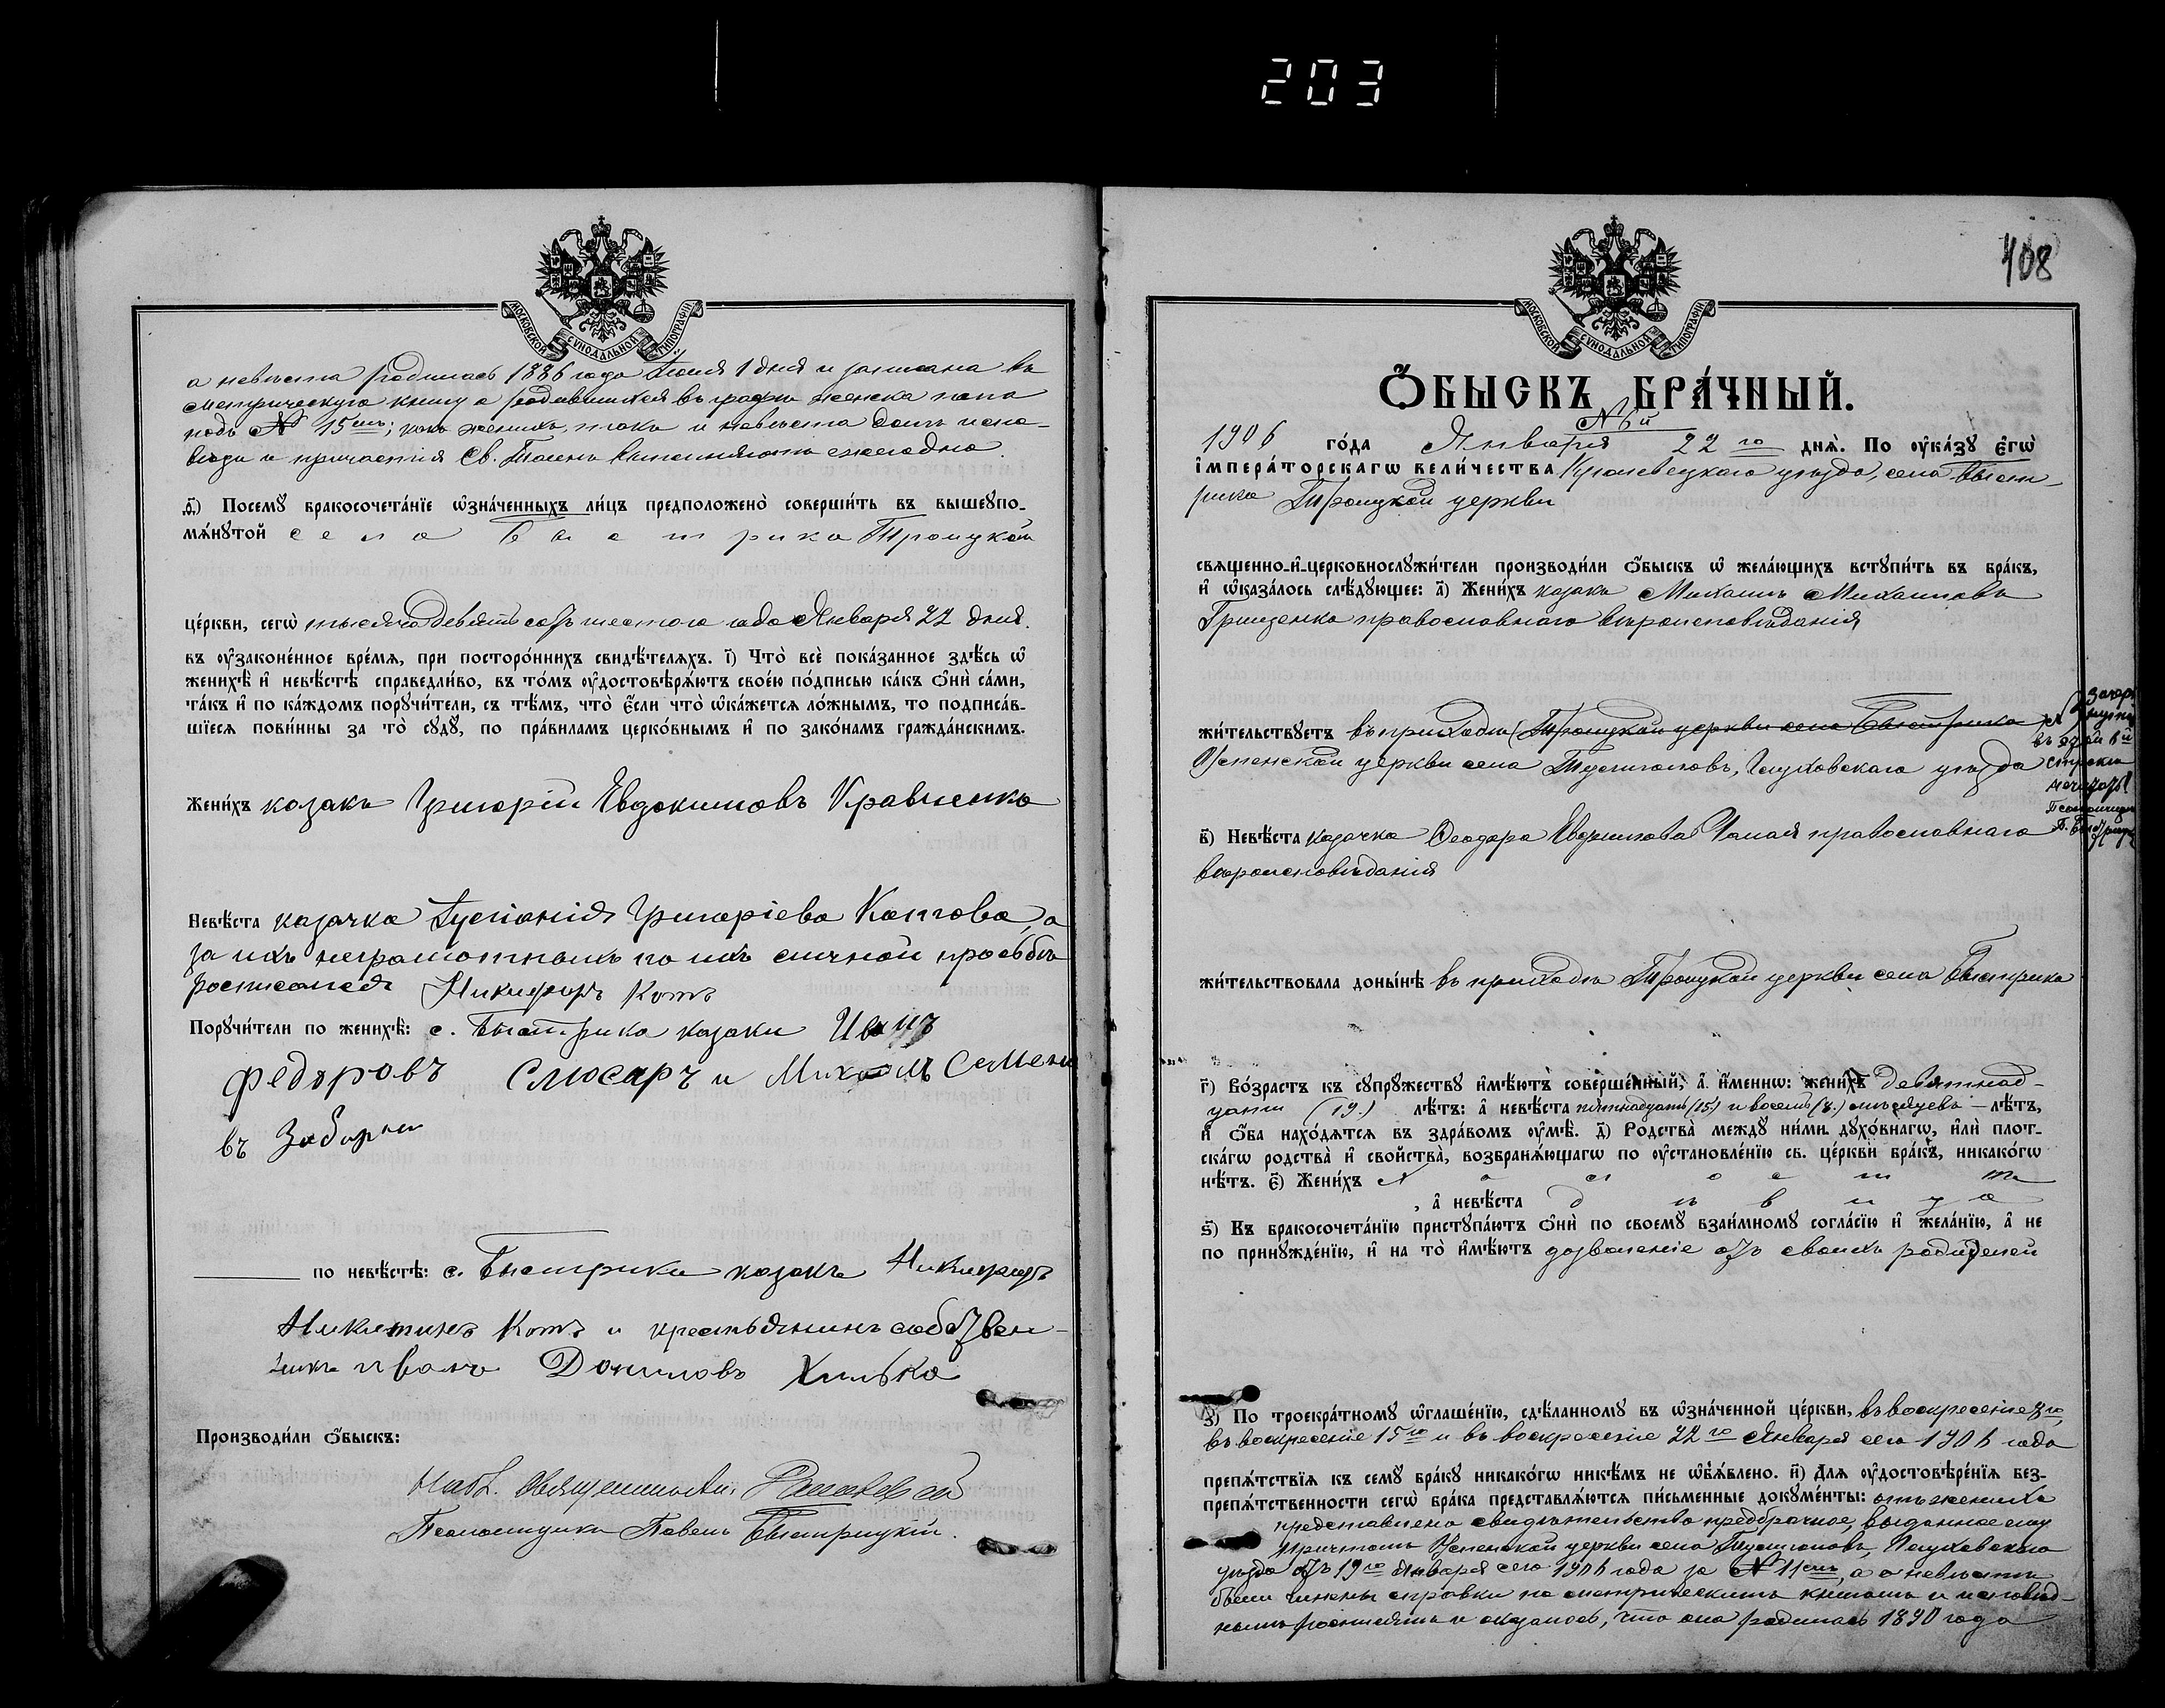 203
МОСКОВСКОЙ СѴНОДАЛЬНОЙ ТИПОГРАФІИ
а невѣста родилась 1886 года Іюня 1 дня и записана въ
метрическую книгу о родившихся въ графѣ женска пола
подъ № 15мъ; какъ женихъ, такъ и невѣста долгъ испо-
вѣди и причастія Св. Таинъ выполняютъ ежегодно.
Ѳ) Посемꙋ бракосочета́нїе ѡ҆зна́ченныхъ ли́цъ предположено̀ соверши́ть въ вышеꙋпо-
мѧ́нꙋтой села Быстрика Троицкой
це́ркви, сегѡ̀ тысяча девятьсотъ шестого года Января 22 дня.
въ ᲂу҆законе́нное вре́мѧ, при посторо́ннихъ свидѣ́телѧхъ. і҃) Что̀ всѐ пока́занное здѣ́сь ѡ҆
женихѣ̀ и҆ невѣ́стѣ справедли́во, въ то́мъ ᲂу҆достовѣрѧ́ютъ свое́ю по́дписью ка́къ ѻ҆нѝ са́ми,
та́къ и҆ по ка́ждомъ порꙋчи́тели, съ тѣ́мъ, что̀ є҆́сли что̀ ѡ҆ка́жетсѧ ло́жнымъ, то подписа́в-
шїесѧ пови́нны за то̀ сꙋдꙋ̀, по пра́виламъ церко́внымъ и҆ по зако́намъ гражда́нскимъ.
Жени́хъ козакъ Григорій Евдокимовъ Кравченко
Невѣ́ста казачка Іустинія Григоріева Котова, а
за ихъ неграмотныхъ по ихъ личной просьбѣ
росписался Никифоръ Котъ
Порꙋчи́тели по женихѣ̀: с. Быстрика казаки Иванъ
Федоровъ Слюсарь и Михаилъ Семено
въ Заборни
по невѣ́стѣ: с. Быстрика казакъ Никифоръ
Никитинъ Котъ и крестьянинъ собствен-
никъ Иванъ Даниловъ Хилько
Производи́ли ѻ҆́быскъ:
Набл. Священникъ
Псаломщикъ Павелъ Быстрицкій.
408
МОСКОВСКОЙ СѴНОДАЛЬНОЙ ТИПОГРАФІИ
Ѻ҆́БЫСКЪ БРА́ЧНЫЙ.
№ 6й
1906 го́да Января 22го днѧ̀. По ᲂу҆ка́зꙋ є҆гѡ̀
і҆мпера́торскагѡ вели́чества Кролевецкаго уѣзда, села Быст-
рика Троицкой церкви
свѧщенно-и҆-церковнослꙋжи́тели производи́ли ѻ҆́быскъ ѡ҆ жела́ющихъ встꙋпи́ть въ бра́къ,
и҆ ѡ҆каза́лось слѣ́дꙋющее: а҃) Жени́хъ казакъ Михаилъ Михаиловъ
Грищенко православнаго вѣроисповѣданія
жи́тельствꙋетъ въ приходѣ (Троицкой церкви села Быстрика)
Успенской церкви села Тулиголовъ, Глуховскаго уѣзда
в҃) Невѣ́ста казачка Ѳеодора Евфимова Чалая православнаго
вѣроисповѣданія
жи́тельствовала доны́нѣ въ приходѣ Троицкой церкви села Быстрика
г҃) Во́зрастъ къ сꙋпрꙋ́жествꙋ и҆мѣ́ютъ соверше́нный, а҆ и҆́меннѡ: жени́хъ девятнад-
цати (19.) лѣ́тъ: а҆ невѣ́ста пятнадцать (15.) и восемь (8.) мѣсяцевъ — лѣ́тъ,
и҆ ѻ҆́ба нахо́дѧтсѧ въ здра́вомъ ᲂу҆мѣ̀. д҃) Родства̀ междꙋ̀ ни́ми дꙋхо́внагѡ, и҆лѝ плот-
ска́гѡ родства̀ и҆ сво́йства, возбранѧ́ющагѡ по ᲂу҆становле́нїю св. це́ркви бра́къ, никако́гѡ
нѣ́тъ. є҃) Жени́хъ холостъ
, а҆ невѣ́ста дѣвица
ѕ҃) Къ бракосочета́нїю пристꙋпа́ютъ ѻ҆нѝ по своемꙋ̀ взаи́мномꙋ согла́сїю и҆ жела́нїю, а҆ не
по принꙋжде́нїю, и҆ на то̀ и҆мѣ́ютъ дозволеніе отъ своихъ родителей
з҃) По троекра́тномꙋ ѡ҆глаше́нїю, сдѣ́ланномꙋ въ ѡ҆зна́ченной це́ркви, въ воскресеніе 8го,
въ воскресеніе 15го и въ воскресеніе 22го Января сего 1906 года
препѧ́тствїѧ къ семꙋ̀ бра́кꙋ никако́гѡ никѣ́мъ не ѡ҆б̾ѧ́влено. и҃) Длѧ ᲂу҆достовѣре́нїѧ без-
препѧ́тственности сегѡ̀ бра́ка представлѧ́ютсѧ пи́сьменные докꙋме́нты: отъ жениха
представлено свидѣтельство предбрачное, выданное ему
причтомъ Успенской церкви села Тулиголовъ, Глуховскаго
уѣзда отъ 19го Января сего 1906 года за № 11мъ, а о невѣстѣ
были чинены справки по метрическимъ книгамъ и исповѣд-
нымъ росписямъ и оказалось, что она родилась 1890 года